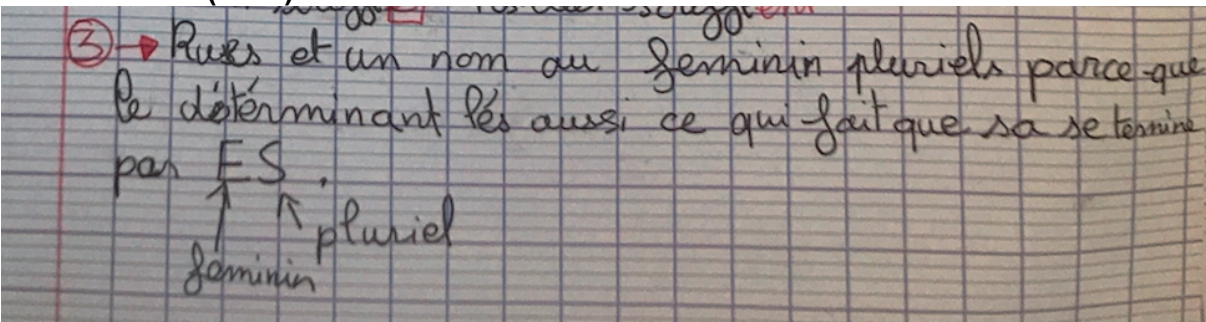 ③→ Rues et un nom au feminin pluriels parce que
le détérminant lés aussi ce qui fait que sa se termine
par ES.
pluriel
feminin